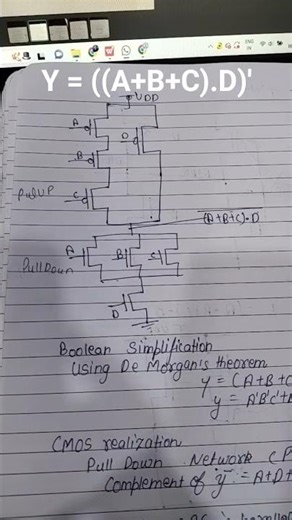 Y = ((A+B+C).D)'
VDD
A
D
B
Pull UP
C
(A+B+C)·D
A
B
C
Pull Down
D
Boolean Simplification
Using De Morgan's theorem
y = (A+B+C
y = A'B'C'+
CMOS realization
Pull Down Network (P
Complement of y = A+D+